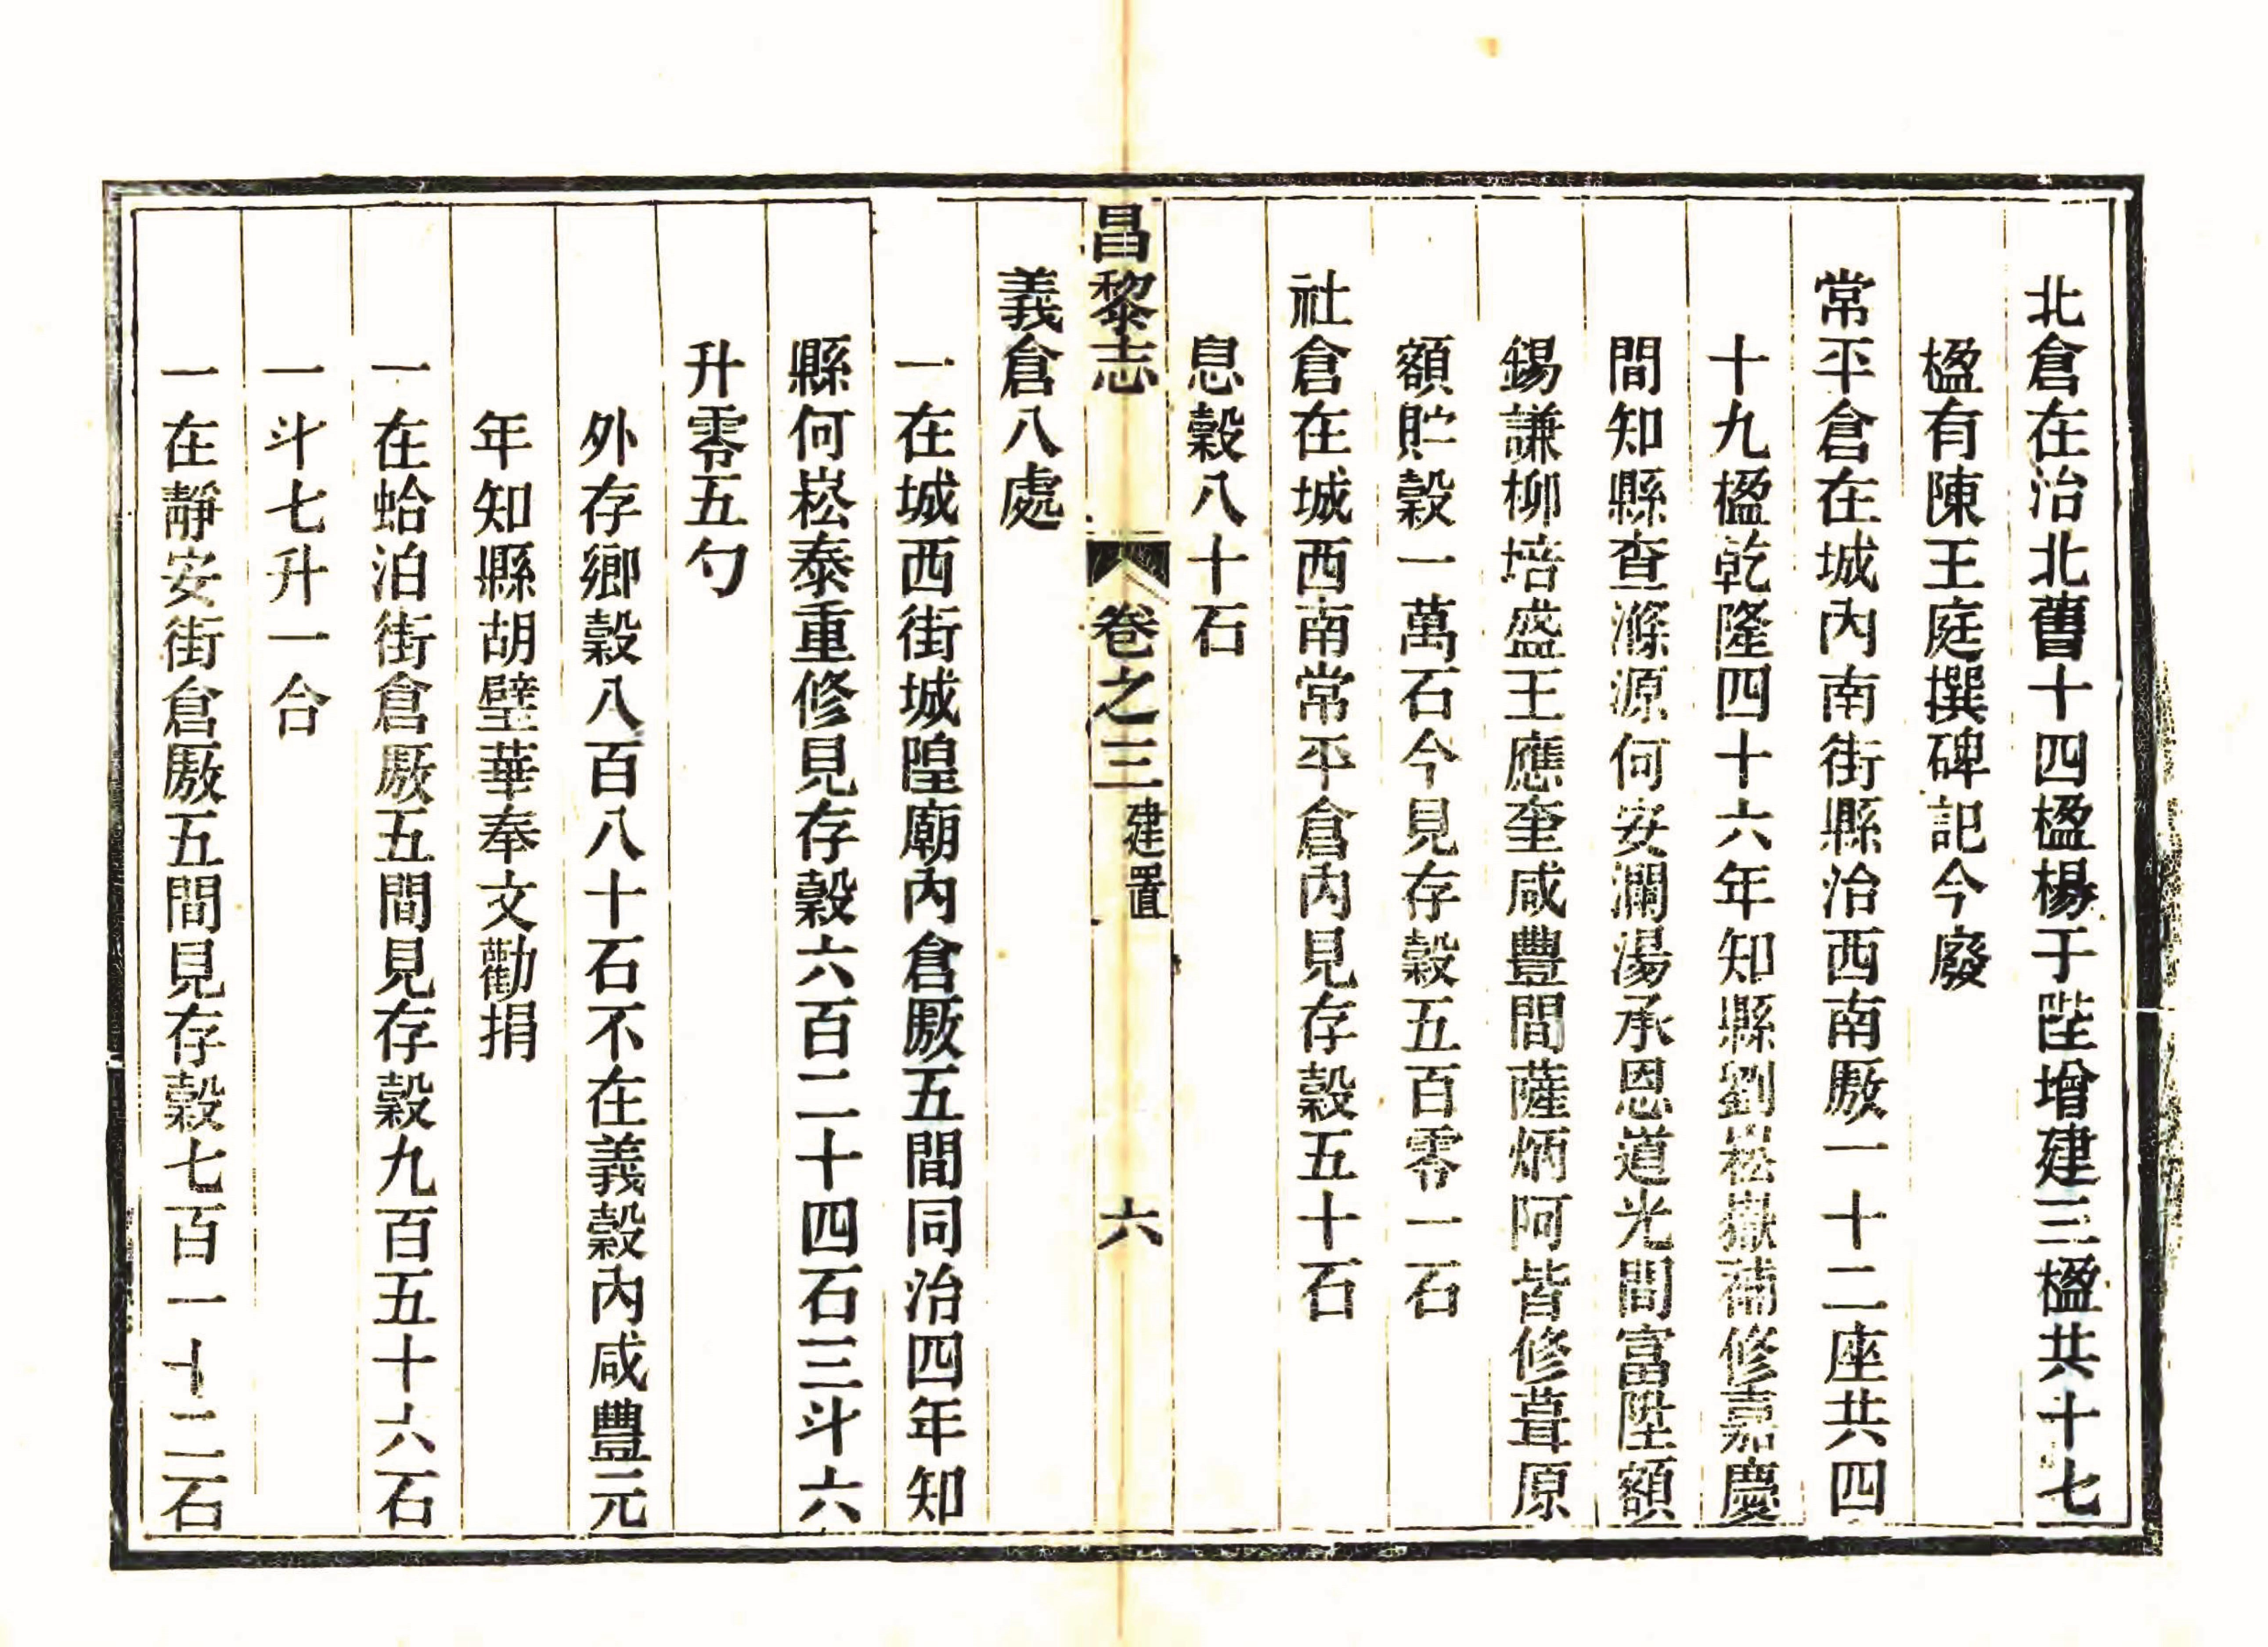 北倉在治北舊十四楹楊于陛增建三楹共十七
楹有陳王庭撰碑記今廢
常平倉在城內南街縣治西南厫一十二座共四
十九楹乾隆四十六年知縣劉崧嶽補修嘉慶
間知縣查滌源何安瀾湯承恩道光間富陞額
錫謙柳培盛王應奎咸豐間薩炳阿皆修葺原
額貯穀一萬石今見存穀五百零一石
社倉在城西南常平倉內見存穀五十石
息穀八十石
昌黎志 卷之三 建置 六
義倉八處
一在城西街城隍廟內倉厫五間同治四年知
縣何崧泰重修見存穀六百二十四石三斗六
升零五勺
外存鄉穀八百八十石不在義穀內咸豐元
年知縣胡壁華奉文勸捐
一在蛤泊街倉厫五間見存穀九百五十六石
一斗七升一合
一在靜安街倉厫五間見存穀七百一十二石